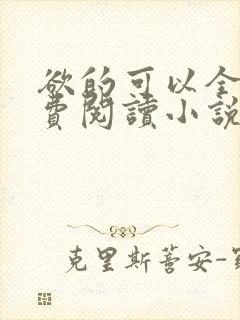 欲的可以全
費閱讀小說
克里斯蒼安-